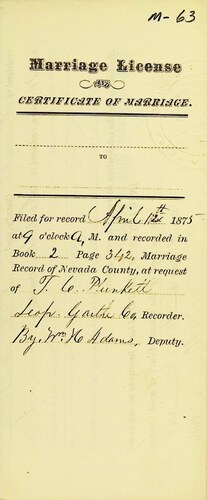 M-63
Marriage License
AND
CERTIFICATE OF MARRIAGE.
TO
Filed for record April 12th 1875
at 9 o'clock A, M. and recorded in
Book 2 Page 342, Marriage
Record of Nevada County, at request
of T. C. Plunkett
Leop. Garthe Co, Recorder.
By, Wm H Adams, Deputy.